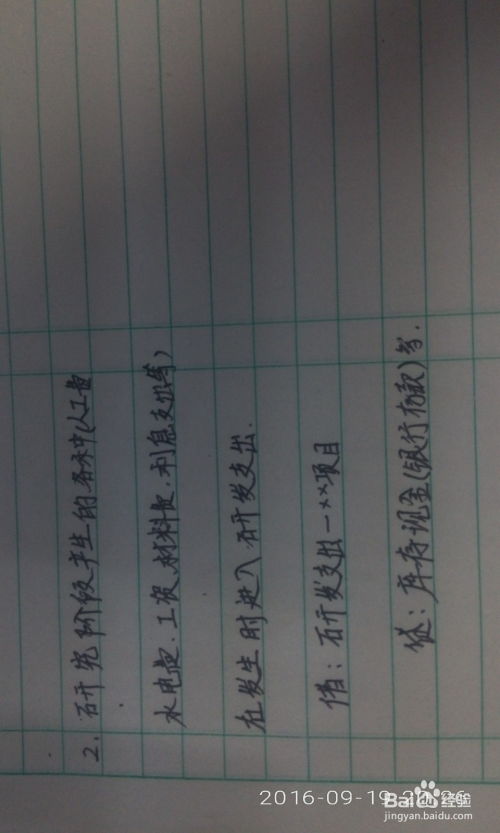 2. 研究阶段产生的各种(人工费
水电费.工资.材料费.利息支出等)
在发生时进入研发支出.
借：研发支出一××项目
贷：库存现金(银行存款)等.
2016-09-19 20:26
Bai 经验
jingyan.baidu.com